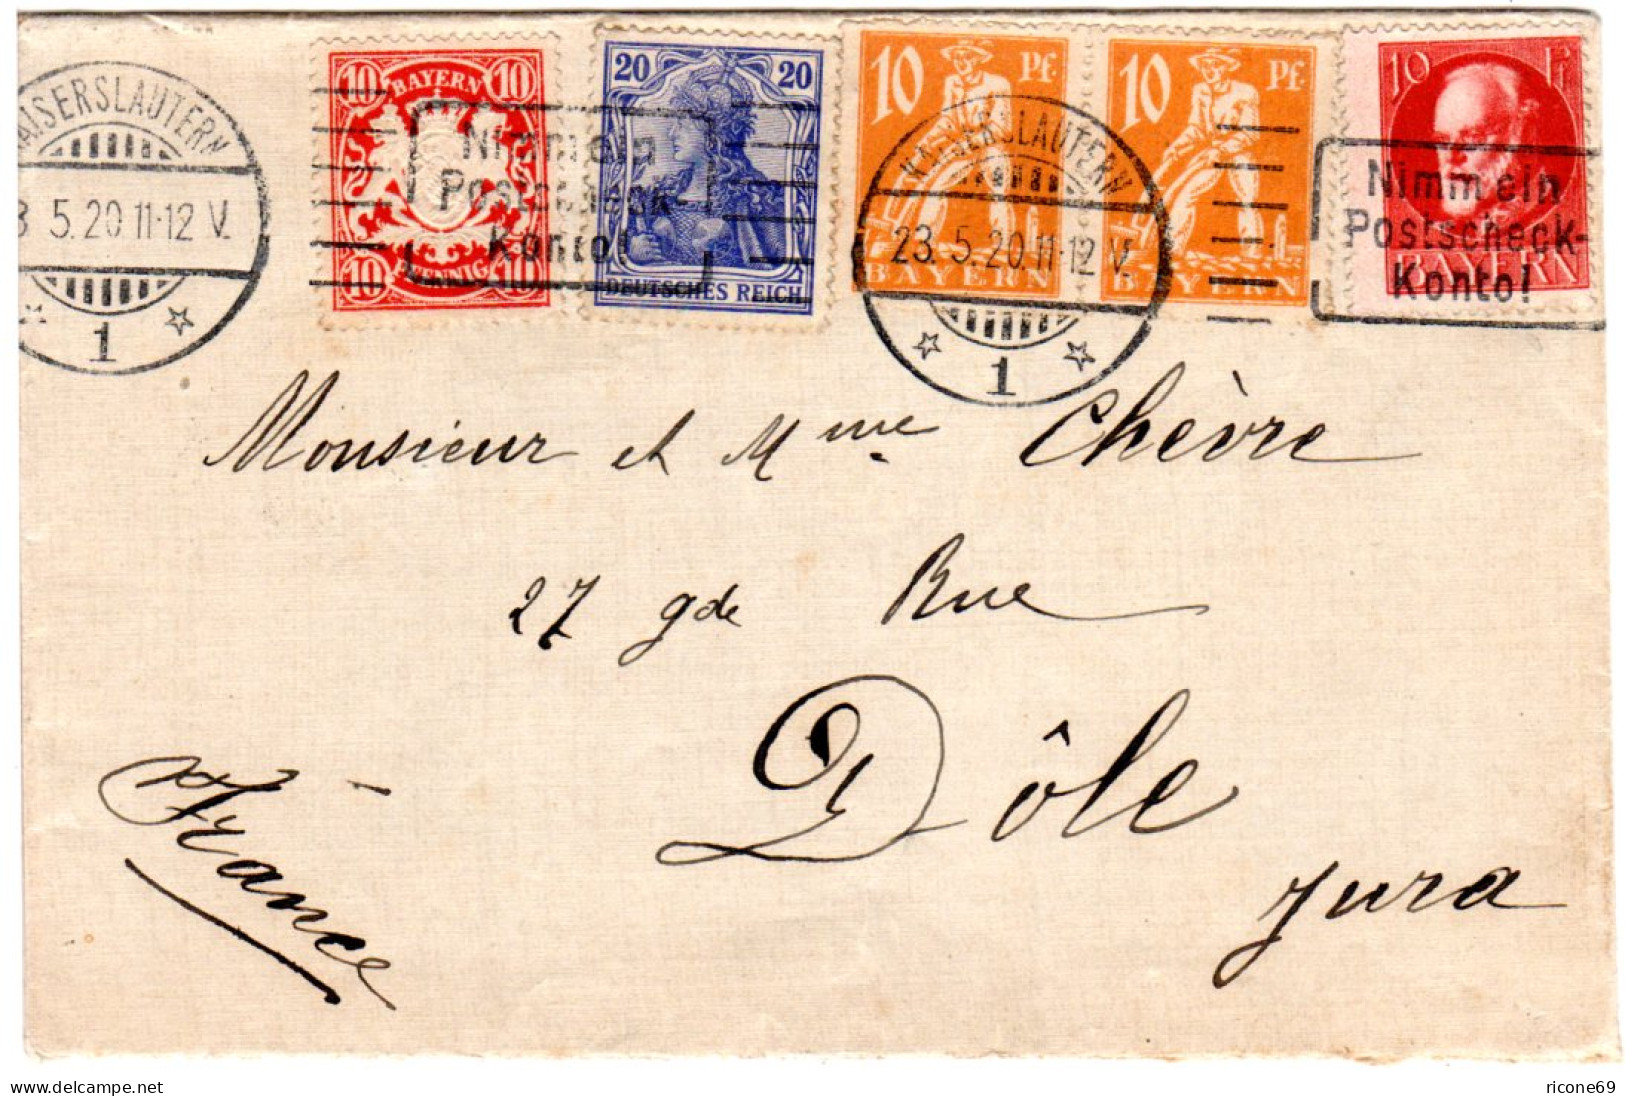 KAISERSLAUTERN
3 5.20 11-12 V.
1
10 BAYERN 10
10 PFENNIG 10
Nimm ein
Postscheck-
Konto!
20 20
DEUTSCHES REICH
10 Pf.
BAYERN
10 Pf.
BAYERN
KAISERSLAUTERN
23. 5.20. 11-12 V.
1
10 Pf.
BAYERN
Nimm ein
Postscheck-
Konto!
Monsieur et Mme Chèvre
27 gde Rue
Dôle
Jura
France
www.delcampe.net
ricone69